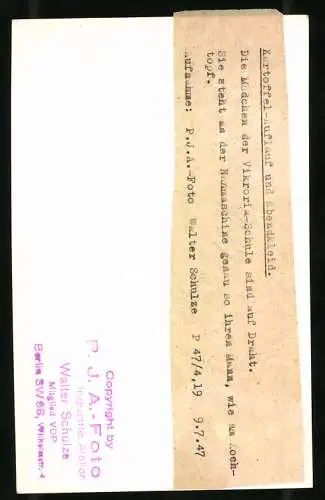 Kartoffel-Auflauf und Abendkleid.
Die Mädchen der Viktoria-Schule sind auf Draht.
Sie steht an der Nähmaschine genau so ihren Mann, wie am Koch-
topf.
Aufnahme: P.J.A.-Foto Walter Schulze P 47/4,19 9.7.47
Copyright by
P. J. A.-Foto
Industrie, Atelier
Walter Schulze
Mitglied VDP
Berlin SW68, Wilhelmstr. 4